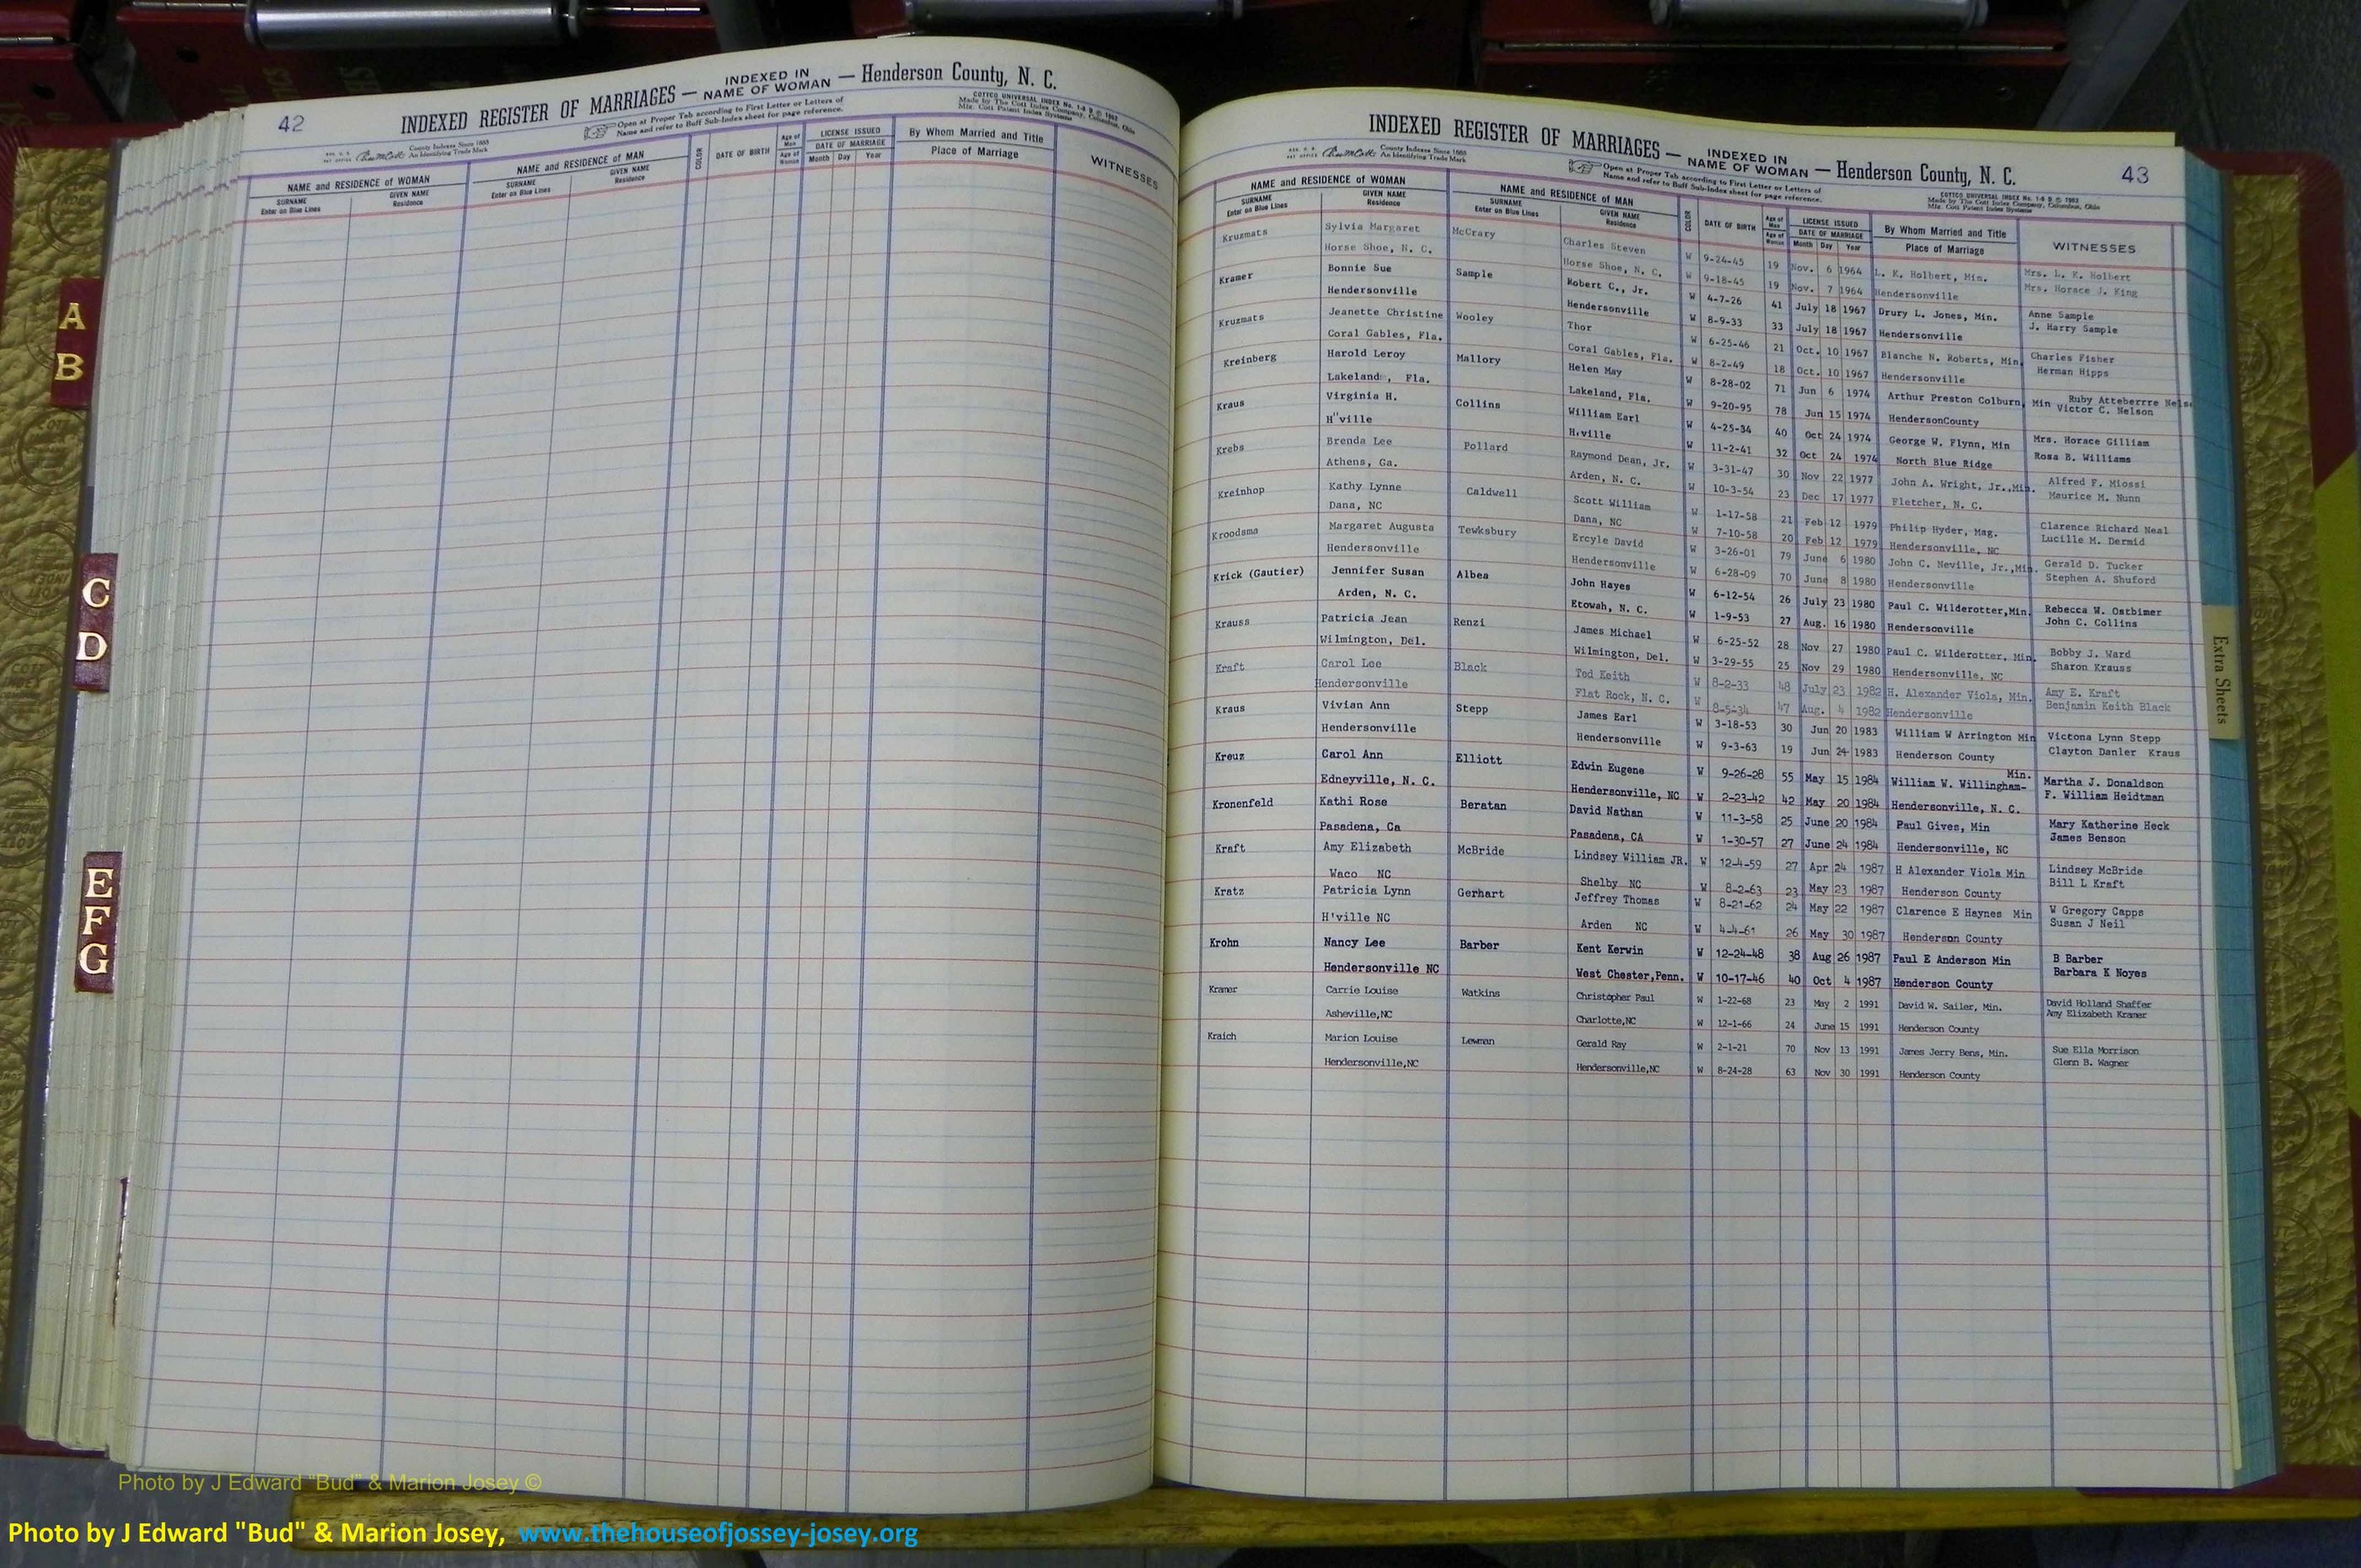 42
INDEXED REGISTER OF MARRIAGES — INDEXED IN NAME OF WOMAN — Henderson County, N. C.
Open at Proper Tab according to First Letter or Letters of
Name and refer to Buff Sub-Index sheet for page reference.
COTTCO UNIVERSAL INDEX No. 1-6 B © 1962
Made by The Cott Index Company, Columbus, Ohio
Mfr. Cott Patent Index Systems
County Indexes Since 1888
An Identifying Trade Mark
NAME and RESIDENCE of WOMAN
SURNAME
Enter on Blue Lines
GIVEN NAME
Residence
NAME and RESIDENCE of MAN
SURNAME
Enter on Blue Lines
GIVEN NAME
Residence
COLOR
DATE OF BIRTH
Age of Man
Age of Woman
LICENSE ISSUED
DATE OF MARRIAGE
Month Day Year
By Whom Married and Title
Place of Marriage
WITNESSES
INDEXED REGISTER OF MARRIAGES — INDEXED IN NAME OF WOMAN — Henderson County, N. C.
43
County Indexes Since 1888
An Identifying Trade Mark
Open at Proper Tab according to First Letter or Letters of
Name and refer to Buff Sub-Index sheet for page reference.
COTTCO UNIVERSAL INDEX No. 1-6 B © 1963
Made by The Cott Index Company, Columbus, Ohio
Mfr. Cott Patent Index Systems
NAME and RESIDENCE of WOMAN
SURNAME
Enter on Blue Lines
GIVEN NAME
Residence
NAME and RESIDENCE of MAN
SURNAME
Enter on Blue Lines
GIVEN NAME
Residence
COLOR
DATE OF BIRTH
Age of Man
Age of Woman
LICENSE ISSUED
DATE OF MARRIAGE
Month Day Year
By Whom Married and Title
Place of Marriage
WITNESSES
Kruzmats Sylvia Margaret McCrary Charles Steven W 9-24-45 19 Nov. 6 1964 L. K. Holbert, Min. Mrs. L. K. Holbert
Horse Shoe, N. C. Horse Shoe, N. C. W 9-18-45 19 Nov. 7 1964 Hendersonville Mrs. Horace J. King
Kramer Bonnie Sue Sample Robert C., Jr. W 4-7-26 41 July 18 1967 Drury L. Jones, Min. Anne Sample
Hendersonville Hendersonville W 8-9-33 33 July 18 1967 Hendersonville J. Harry Sample
Kruzmats Jeanette Christine Wooley Thor W 6-25-46 21 Oct. 10 1967 Blanche N. Roberts, Min. Charles Fisher
Coral Gables, Fla. Coral Gables, Fla. W 8-2-49 18 Oct. 10 1967 Hendersonville Herman Hipps
Kreinberg Harold Leroy Mallory Helen May W 8-28-02 71 Jun 6 1974 Arthur Preston Colburn, Min Ruby Atteberrre Nels
Lakeland, Fla. Lakeland, Fla. W 9-20-95 78 Jun 15 1974 HendersonCounty Victor C. Nelson
Kraus Virginia H. Collins William Earl W 4-25-34 40 Oct 24 1974 George W. Flynn, Min Mrs. Horace Gilliam
H"ville H.ville W 11-2-41 32 Oct 24 1974 North Blue Ridge Rosa B. Williams
Krebs Brenda Lee Pollard Raymond Dean, Jr. W 3-31-47 30 Nov 22 1977 John A. Wright, Jr.,Min. Alfred F. Miossi
Athens, Ga. Arden, N. C. W 10-3-54 23 Dec 17 1977 Fletcher, N. C. Maurice M. Nunn
Kreinhop Kathy Lynne Caldwell Scott William W 1-17-58 21 Feb 12 1979 Philip Hyder, Mag. Clarence Richard Neal
Dana, NC Dana, NC W 7-10-58 20 Feb 12 1979 Hendersonville, NC Lucille M. Dermid
Kroodsma Margaret Augusta Tewksbury Ercyle David W 3-26-01 79 June 6 1980 John C. Neville, Jr.,Min. Gerald D. Tucker
Hendersonville Hendersonville W 6-28-09 70 June 8 1980 Hendersonville Stephen A. Shuford
Krick (Gautier) Jennifer Susan Albea John Hayes W 6-12-54 26 July 23 1980 Paul C. Wilderotter,Min. Rebecca W. Ostbimer
Arden, N. C. Etowah, N. C. W 1-9-53 27 Aug. 16 1980 Hendersonville John C. Collins
Krauss Patricia Jean Renzi James Michael W 6-25-52 28 Nov 27 1980 Paul C. Wilderotter, Min. Bobby J. Ward
Wilmington, Del. Wilmington, Del. W 3-29-55 25 Nov 29 1980 Hendersonville, NC Sharon Krauss
Kraft Carol Lee Black Ted Keith W 8-2-33 48 July 23 1982 H. Alexander Viola, Min. Amy E. Kraft
Hendersonville Flat Rock, N. C. W 8-5-34 47 Aug. 4 1982 Hendersonville Benjamin Keith Black
Kraus Vivian Ann Stepp James Earl W 3-18-53 30 Jun 20 1983 William W Arrington Min Victona Lynn Stepp
Hendersonville Hendersonville W 9-3-63 19 Jun 24 1983 Henderson County Clayton Danler Kraus
Kreuz Carol Ann Elliott Edwin Eugene W 9-26-28 55 May 15 1984 William W. Willingham- Min. Martha J. Donaldson
Edneyville, N. C. Hendersonville, NC W 2-23-42 42 May 20 1984 Hendersonville, N. C. F. William Heidtman
Kronenfeld Kathi Rose Beratan David Nathan W 11-3-58 25 June 20 1984 Paul Gives, Min Mary Katherine Heck
Pasadena, Ca Pasadena, CA W 1-30-57 27 June 24 1984 Hendersonville, NC James Benson
Kraft Amy Elizabeth McBride Lindsey William JR. W 12-4-59 27 Apr 24 1987 H Alexander Viola Min Lindsey McBride
Waco NC Shelby NC W 8-2-63 23 May 23 1987 Henderson County Bill L Kraft
Kratz Patricia Lynn Gerhart Jeffrey Thomas W 8-21-62 24 May 22 1987 Clarence E Haynes Min W Gregory Capps
H'ville NC Arden NC W 4-4-61 26 May 30 1987 Henderson County Susan J Neil
Krohn Nancy Lee Barber Kent Kerwin W 12-24-48 38 Aug 26 1987 Paul E Anderson Min B Barber
Hendersonville NC West Chester,Penn. W 10-17-46 40 Oct 4 1987 Henderson County Barbara K Noyes
Kramer Carrie Louise Watkins Christopher Paul W 1-22-68 23 May 2 1991 David W. Sailer, Min. David Holland Shaffer
Asheville,NC Charlotte,NC W 12-1-66 24 June 15 1991 Henderson County Amy Elizabeth Kramer
Kraich Marion Louise Lewman Gerald Ray W 2-1-21 70 Nov 13 1991 James Jerry Bens, Min. Sue Ella Morrison
Hendersonville,NC Hendersonville,NC W 8-24-28 63 Nov 30 1991 Henderson County Glenn B. Wagner
A
B
C
D
E
F
G
Extra Sheets
Photo by J Edward "Bud" & Marion Josey ©
Photo by J Edward "Bud" & Marion Josey, www.thehouseofjossey-josey.org